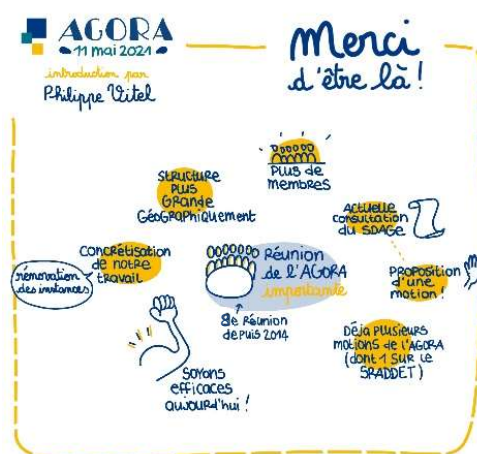 AGORA
11 mai 2021
introduction par
Philippe Vitel
Merci
d'être là !
Plus de
membres
Structure
Plus
Grande
Géographiquement
Actuelle
consultation
du SDAGE
Concrétisation
de notre
travail
rénovation
des instances
Réunion
de l'AGORA
importante
Proposition
d'une
motion !
8e Réunion
depuis 2014
Déjà plusieurs
motions de l'AGORA
(dont 1 sur le
SRADDET)
Soyons
efficaces
aujourd'hui !